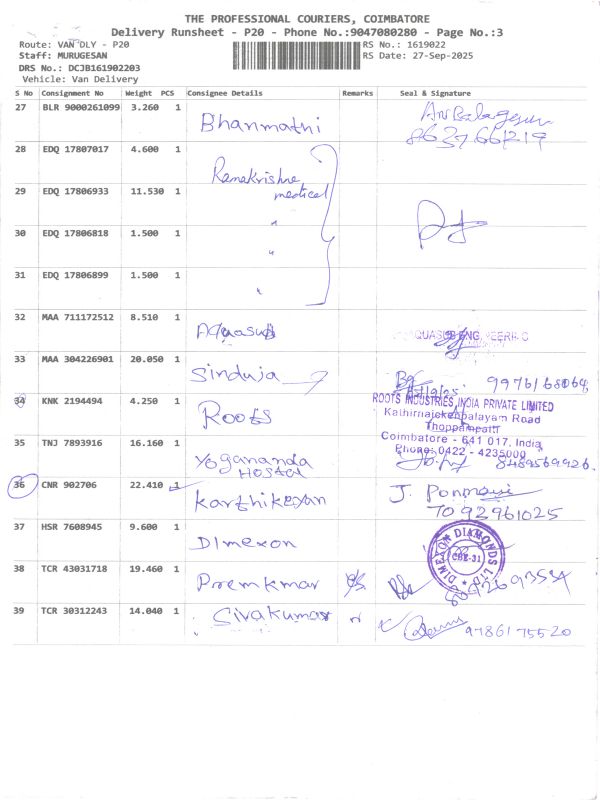 THE PROFESSIONAL COURIERS, COIMBATORE
Delivery Runsheet - P20 - Phone No.:9047080280 - Page No.:3
Route: VAN DLY - P20
RS No.: 1619022
Staff: MURUGESAN
RS Date: 27-Sep-2025
DRS No.: DCJB161902203
Vehicle: Van Delivery
S No Consignment No Weight PCS Consignee Details Remarks Seal & Signature
27 BLR 9000261099 3.260 1 Bhanmathi
8637661219
28 EDQ 17807017 4.600 1 Ramakrishna
medical
29 EDQ 17806933 11.530 1 "
30 EDQ 17806818 1.500 1 "
31 EDQ 17806899 1.500 1 "
32 MAA 711172512 8.510 1 Aquasub
33 MAA 304226901 20.050 1 Sinduja
9976168064
34 KNK 2194494 4.250 1 Roots
ROOTS INDUSTRIES INDIA PRIVATE LIMITED
Kathirnaickenpalayam Road
Thoppampatti
Coimbatore - 641 017, India
Phone: 0422 - 4235000
35 TNJ 7893916 16.160 1 Yogananda
Hostel
8489569926
36 CNR 902706 22.410 1 Karthikeyan
J. Ponmani
7092961025
37 HSR 7608945 9.600 1 Dimexon
DIMEXON DIAMONDS LTD
CBE-31
38 TCR 43031718 19.460 1 Premkmar
39 TCR 30312243 14.040 1 Sivakumar
9786175520